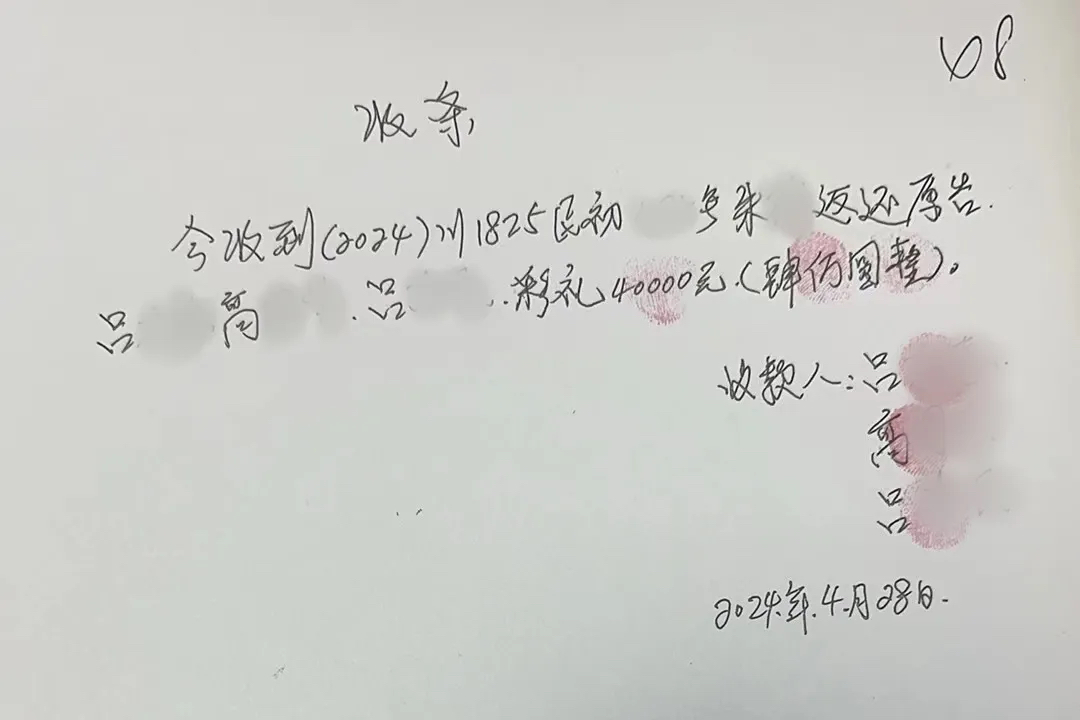 68
收条
今收到(2024)川1825民初 号朱 返还原告.
吕 高 、吕 彩礼40000元(肆万圆整)。
收款人:吕
高
吕
2024年.4月28日.